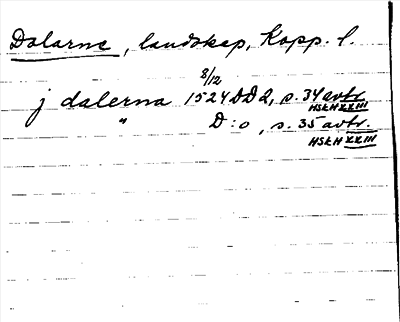 Dalarne, landskap, Kopp. l.
8/12
j dalerna 1524 DD2, s. 34 avtr.
HSH XXIII
" D:o, s. 35 avtr.
HSH XXIII